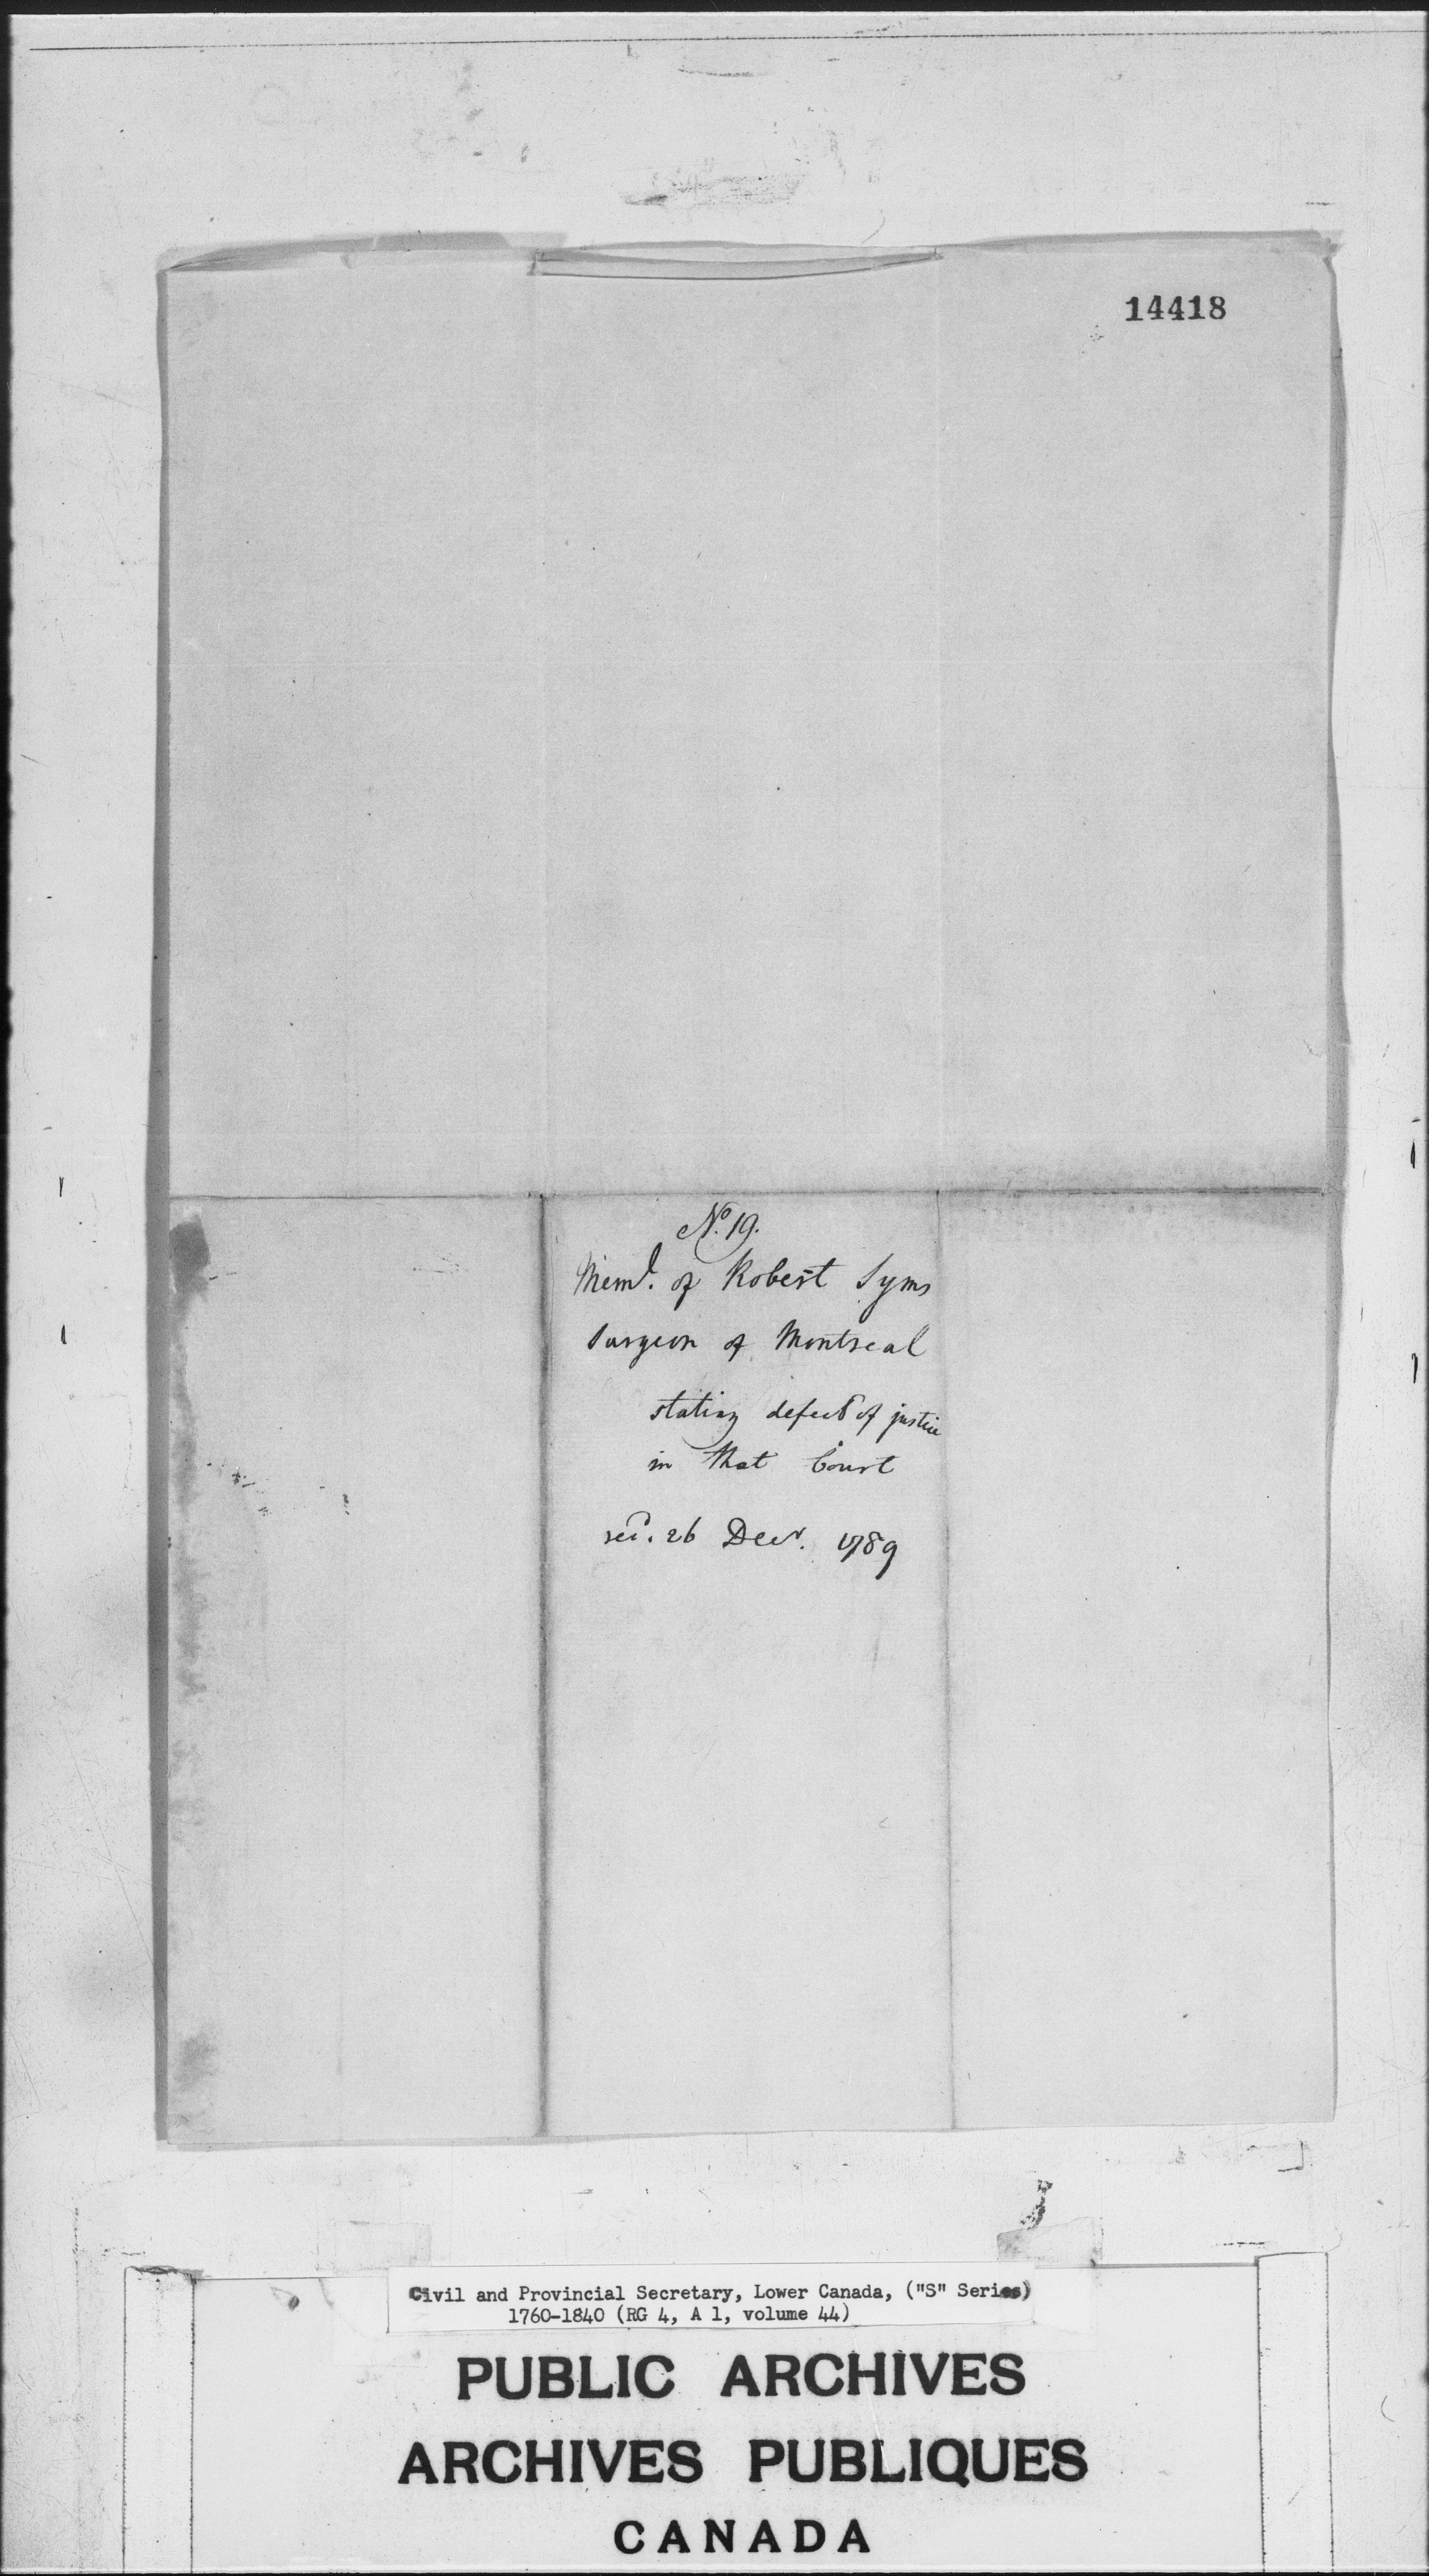 14418
No. 19.
Meml. of Robert Syms
Surgeon of Montreal
stating defect of justice
in that Court
recd. 26 Decr. 1789
Civil and Provincial Secretary, Lower Canada, ("S" Series)
1760-1840 (RG 4, A 1, volume 44)
PUBLIC ARCHIVES
ARCHIVES PUBLIQUES
CANADA